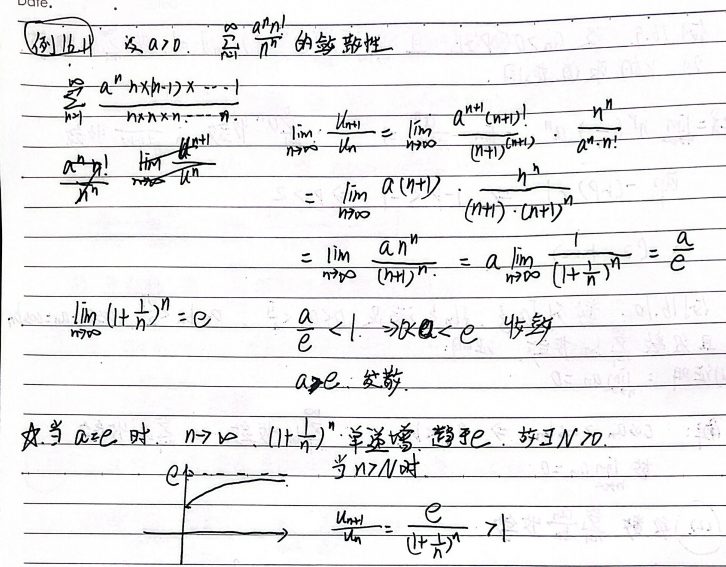 Date.
例16.4 设 a>0. ∑_{n=1}^{∞} a^n n!/n^n 的敛散性
∑_{n=1}^{∞} a^n n×(n-1)×…1 / n×n×n…n.
lim_{n→∞} u_{n+1}/u_n = lim_{n→∞} a^{n+1}(n+1)!/(n+1)^{(n+1)} · n^n/(a^n·n!)
a^n n!/n^n lim_{n→∞} a^{n+1}/u^n
= lim_{n→∞} a(n+1) · n^n/((n+1)·(n+1)^n)
= lim_{n→∞} a n^n/(n+1)^n. = a lim_{n→∞} 1/(1+1/n)^n = a/e
lim_{n→∞} (1+1/n)^n = e a/e < 1. ⇒ 0<a<e 收敛
a>e. 发散.
☆. 当 a=e 时. n→∞. (1+1/n)^n. 单递增 趋于e. 故∃N>0.
当 n>N时.
e
u_{n+1}/u_n = e/(1+1/n)^n >1